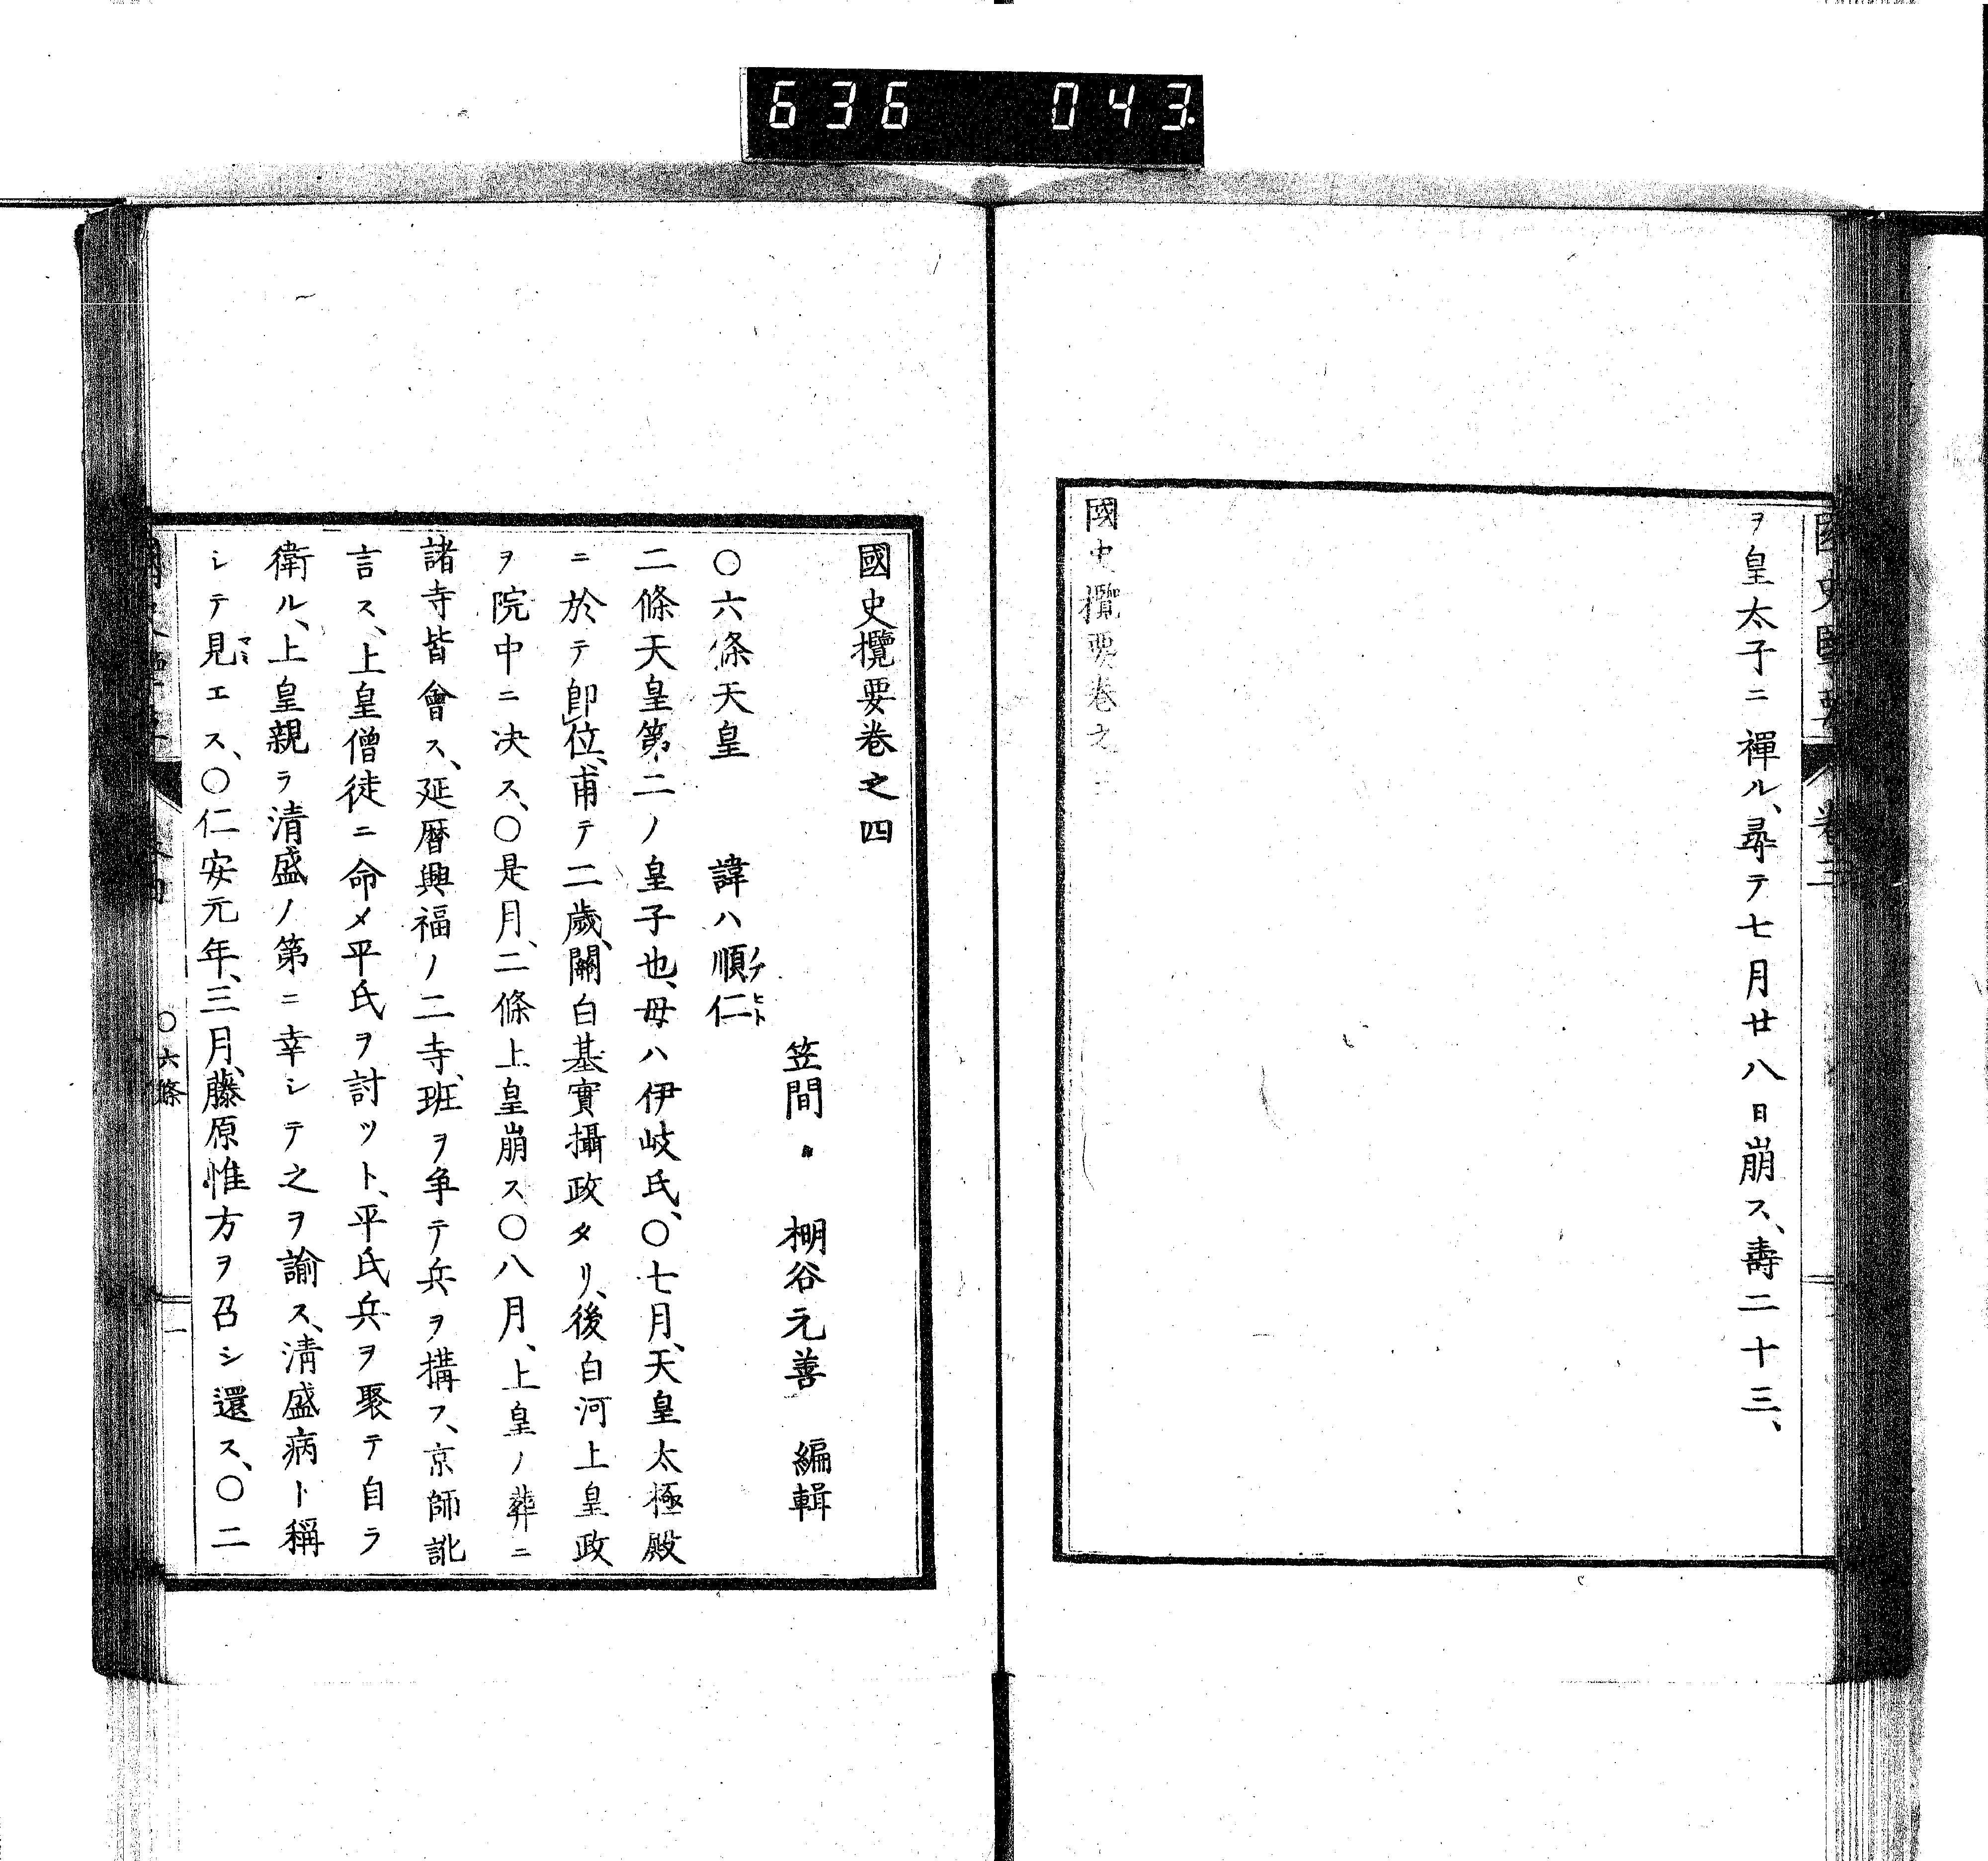 636 043.
ヲ皇太子ニ禪ル、尋テ七月廿八日崩ス、壽二十三、
國史攬要卷之三
國史攬要卷之四
笠間 棚谷元善 編輯
○六條天皇 諱ハ順仁
ノブヒト
二條天皇第二ノ皇子也、母ハ伊岐氏、○七月、天皇太極殿
ニ於テ卽位、甫テ二歲、關白基實攝政タリ、後白河上皇政
ヲ院中ニ决ス、○是月、二條上皇崩ス○八月、上皇ノ葬ニ
諸寺皆會ス、延曆興福ノ二寺、班ヲ爭テ兵ヲ搆フ、京師訛
言ス、上皇僧徒ニ命メ平氏ヲ討ツト、平氏兵ヲ聚テ自ラ
衛ル、上皇親ラ清盛ノ第ニ幸シテ之ヲ諭ス、清盛病ト稱
シテ見エス、○仁安元年、三月、藤原惟方ヲ召シ還ス、○二
マミ
○六條
一